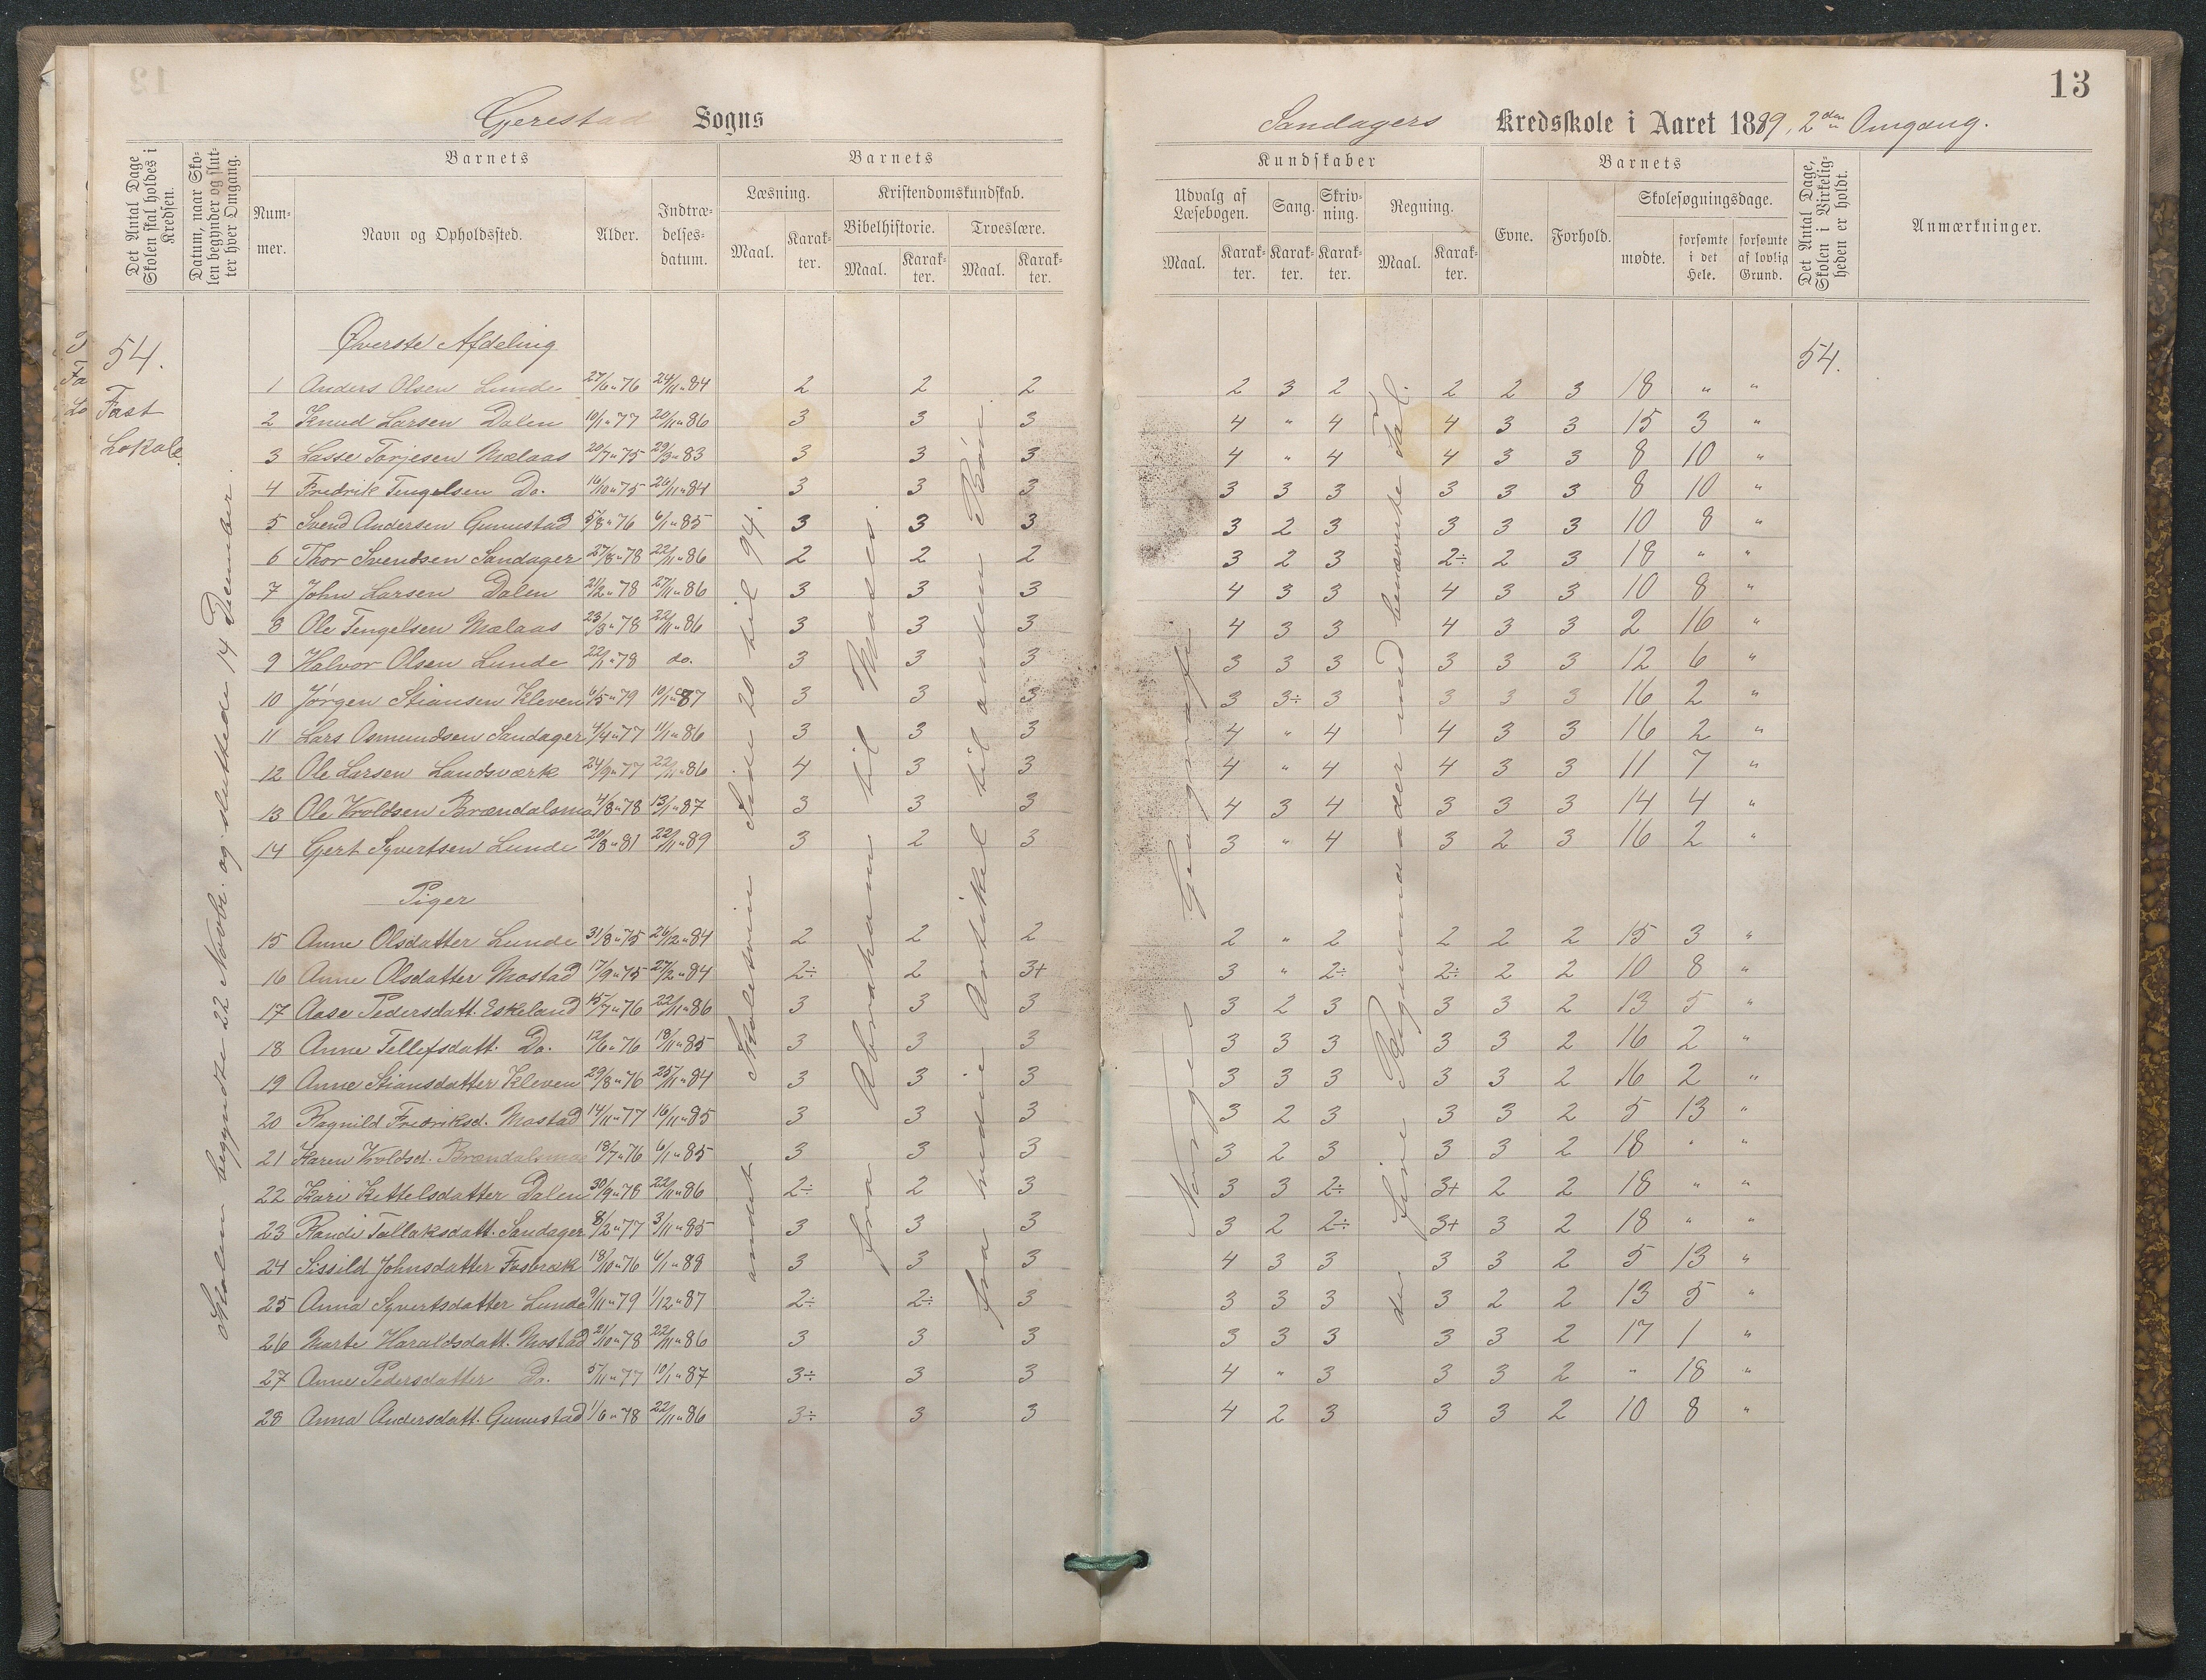 13
Gjerestad Sogns
Sandagers Kredsskole i Aaret 1889, 2den Omgang.
Det Antal Dage Skolen skal holdes i Kredsen.
Datum, naar Skolen begynder og slutter hver Omgang.
Barnets
Nummer.
Navn og Opholdssted.
Alder.
Indtrædelsesdatum.
Barnets
Læsning.
Maal.
Karakter.
Kristendomskundskab.
Bibelhistorie.
Maal.
Karakter.
Troeslære.
Maal.
Karakter.
Kundskaber
Udvalg af Læsebogen.
Maal.
Karakter.
Sang.
Karakter.
Skrivning.
Karakter.
Regning.
Maal.
Karakter.
Barnets
Evne.
Forhold.
Skolesøgningsdage.
mødte.
forsømte i det Hele.
forsømte af lovlig Grund.
Det Antal Dage, Skolen i Virkeligheden er holdt.
Anmærkninger.
54.
Fast
Lokale
Skolen begyndte 22 Novbr. og sluttede 14 December.
Øverste Afdeling
54.
1 Anders Olsen Lunde 27/6 " 76 24/11 " 84 2 2 2 2 3 2 2 2 3 18 " "
2 Knud Larsen Dalen 10/1 " 77 20/11 " 86 3 3 3 4 " 4 4 3 3 15 3 "
3 Lasse Torjesen Mælaas 20/7 " 75 29/3 " 83 3 3 3 4 " 4 4 3 3 8 10 "
4 Fredrik Tengelsen Do. 16/10 " 75 26/11 " 84 3 3 3 3 3 3 3 3 3 8 10 "
5 Svend Andersen Gunustad 5/8 " 76 6/1 " 85 3 3 3 3 2 3 3 3 3 10 8 "
6 Thor Svendsen Sandager 27/8 " 78 22/11 " 86 2 2 2 3 2 3 2÷ 2 3 18 " "
7 John Larsen Dalen 21/2 " 78 27/11 " 86 3 3 3 4 3 3 4 3 3 10 8 "
8 Ole Tengelsen Mælaas 23/3 " 78 22/11 " 86 3 3 3 4 3 3 4 3 3 2 16 "
9 Halvor Olsen Lunde 22/1 " 78 do. 3 3 3 3 3 3 3 3 3 12 6 "
10 Jørgen Stiansen Kleven 6/5 " 79 10/1 " 87 3 3 3 3 3÷ 3 3 3 3 16 2 "
11 Lars Osmundsen Sandager 4/4 " 77 11/1 " 86 3 3 3 4 " 4 4 3 3 16 2 "
12 Ole Larsen Landsværk 24/9 " 77 22/11 " 86 4 3 3 4 " 4 4 3 3 11 7 "
13 Ole Kroldsen Brændalsmo 4/8 " 78 13/1 " 87 3 3 3 4 3 4 3 3 3 14 4 "
14 Gjert Syvertsen Lunde 20/8 " 81 22/11 " 89 3 2 3 3 " 4 3 2 3 16 2 "
Piger
15 Anne Olsdatter Lunde 31/8 " 75 26/2 " 84 2 2 2 2 " 2 2 2 2 15 3 "
16 Anne Olsdatter Mostad 17/9 " 75 27/2 " 84 2÷ 2 3+ 3 " 2÷ 2÷ 2 2 10 8 "
17 Aase Pedersdatt. Eskeland 15/7 " 76 22/11 " 86 3 3 3 3 2 3 3 3 2 13 5 "
18 Anne Tellefsdatt. Do. 12/6 " 76 18/11 " 85 3 3 3 3 3 3 3 3 2 16 2 "
19 Anne Stiansdatter Kleven 29/8 " 76 25/11 " 84 3 3 3 3 3 3 3 3 2 16 2 "
20 Ragnild Fredriksd. Mostad 14/11 " 77 16/11 " 85 3 3 3 3 2 3 3 3 2 5 13 "
21 Karen Kroldsd. Brændalsmo 18/7 " 76 6/1 " 85 3 3 3 3 2 3 3 3 2 18 " "
22 Kari Kittelsdatter Dalen 30/9 " 78 22/11 " 86 2÷ 2 3 3 3 2÷ 3+ 2 2 18 " "
23 Randi Tallaksdatt. Sandager 8/2 " 77 3/11 " 85 3 3 3 3 2 2÷ 3+ 3 2 18 " "
24 Sissild Johnsdatter Fosbræk 18/10 " 76 4/1 " 88 3 3 3 4 3 3 3 3 2 5 13 "
25 Anna Syvertsdatter Lunde 9/11 " 79 1/12 " 87 2÷ 2÷ 3 3 3 3 3 2 2 13 5 "
26 Marte Haraldsdatt. Mostad 21/10 " 78 22/11 " 86 3 3 3 3 3 3 3 3 2 17 1 "
27 Anne Pedersdatter Do. 5/11 " 77 10/1 " 87 3÷ 3 3 4 " 3 3 3 2 " 18 "
28 Anna Andersdatt. Gunustad 1/6 " 78 22/11 " 86 3÷ 3 3 4 2 3 3 3 2 10 8 "
andet Skoletrin Side 20 til 94.
fra Abraham til Moses.
fra tredie Artikel til anden Bøn.
Norges Geografi.
de fire Regnemaader med benævnte Tal.